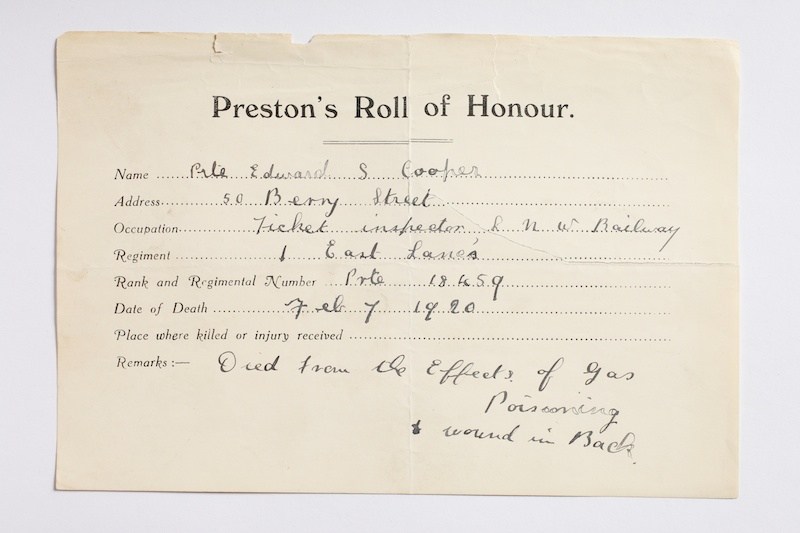 Preston's Roll of Honour.
Name Prte Edward S Cooper
Address 50 Berry Street
Occupation Ticket inspector L N W Railway
Regiment 1 East Lanc's
Rank and Regimental Number Prte 18459
Date of Death Feb 7 1920
Place where killed or injury received
Remarks :— Died from the Effects of Gas
Poisoning
& wound in Back.